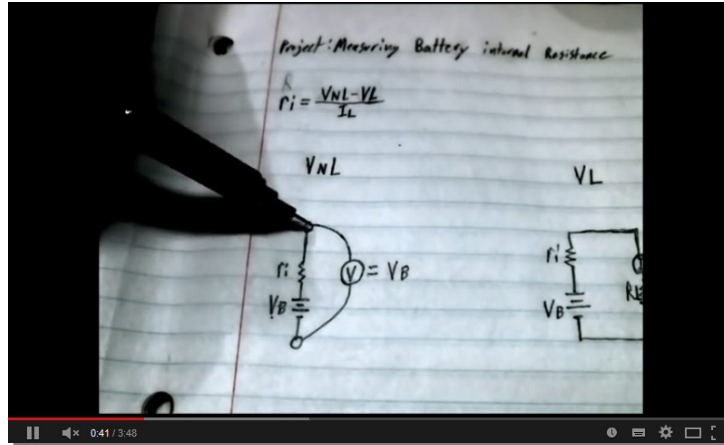 Project: Measuring Battery internal Resistance
R
ri = VNL-VL
IL
VNL
VL
ri
V = VB
VB
ri
VB
0:41 / 3:48